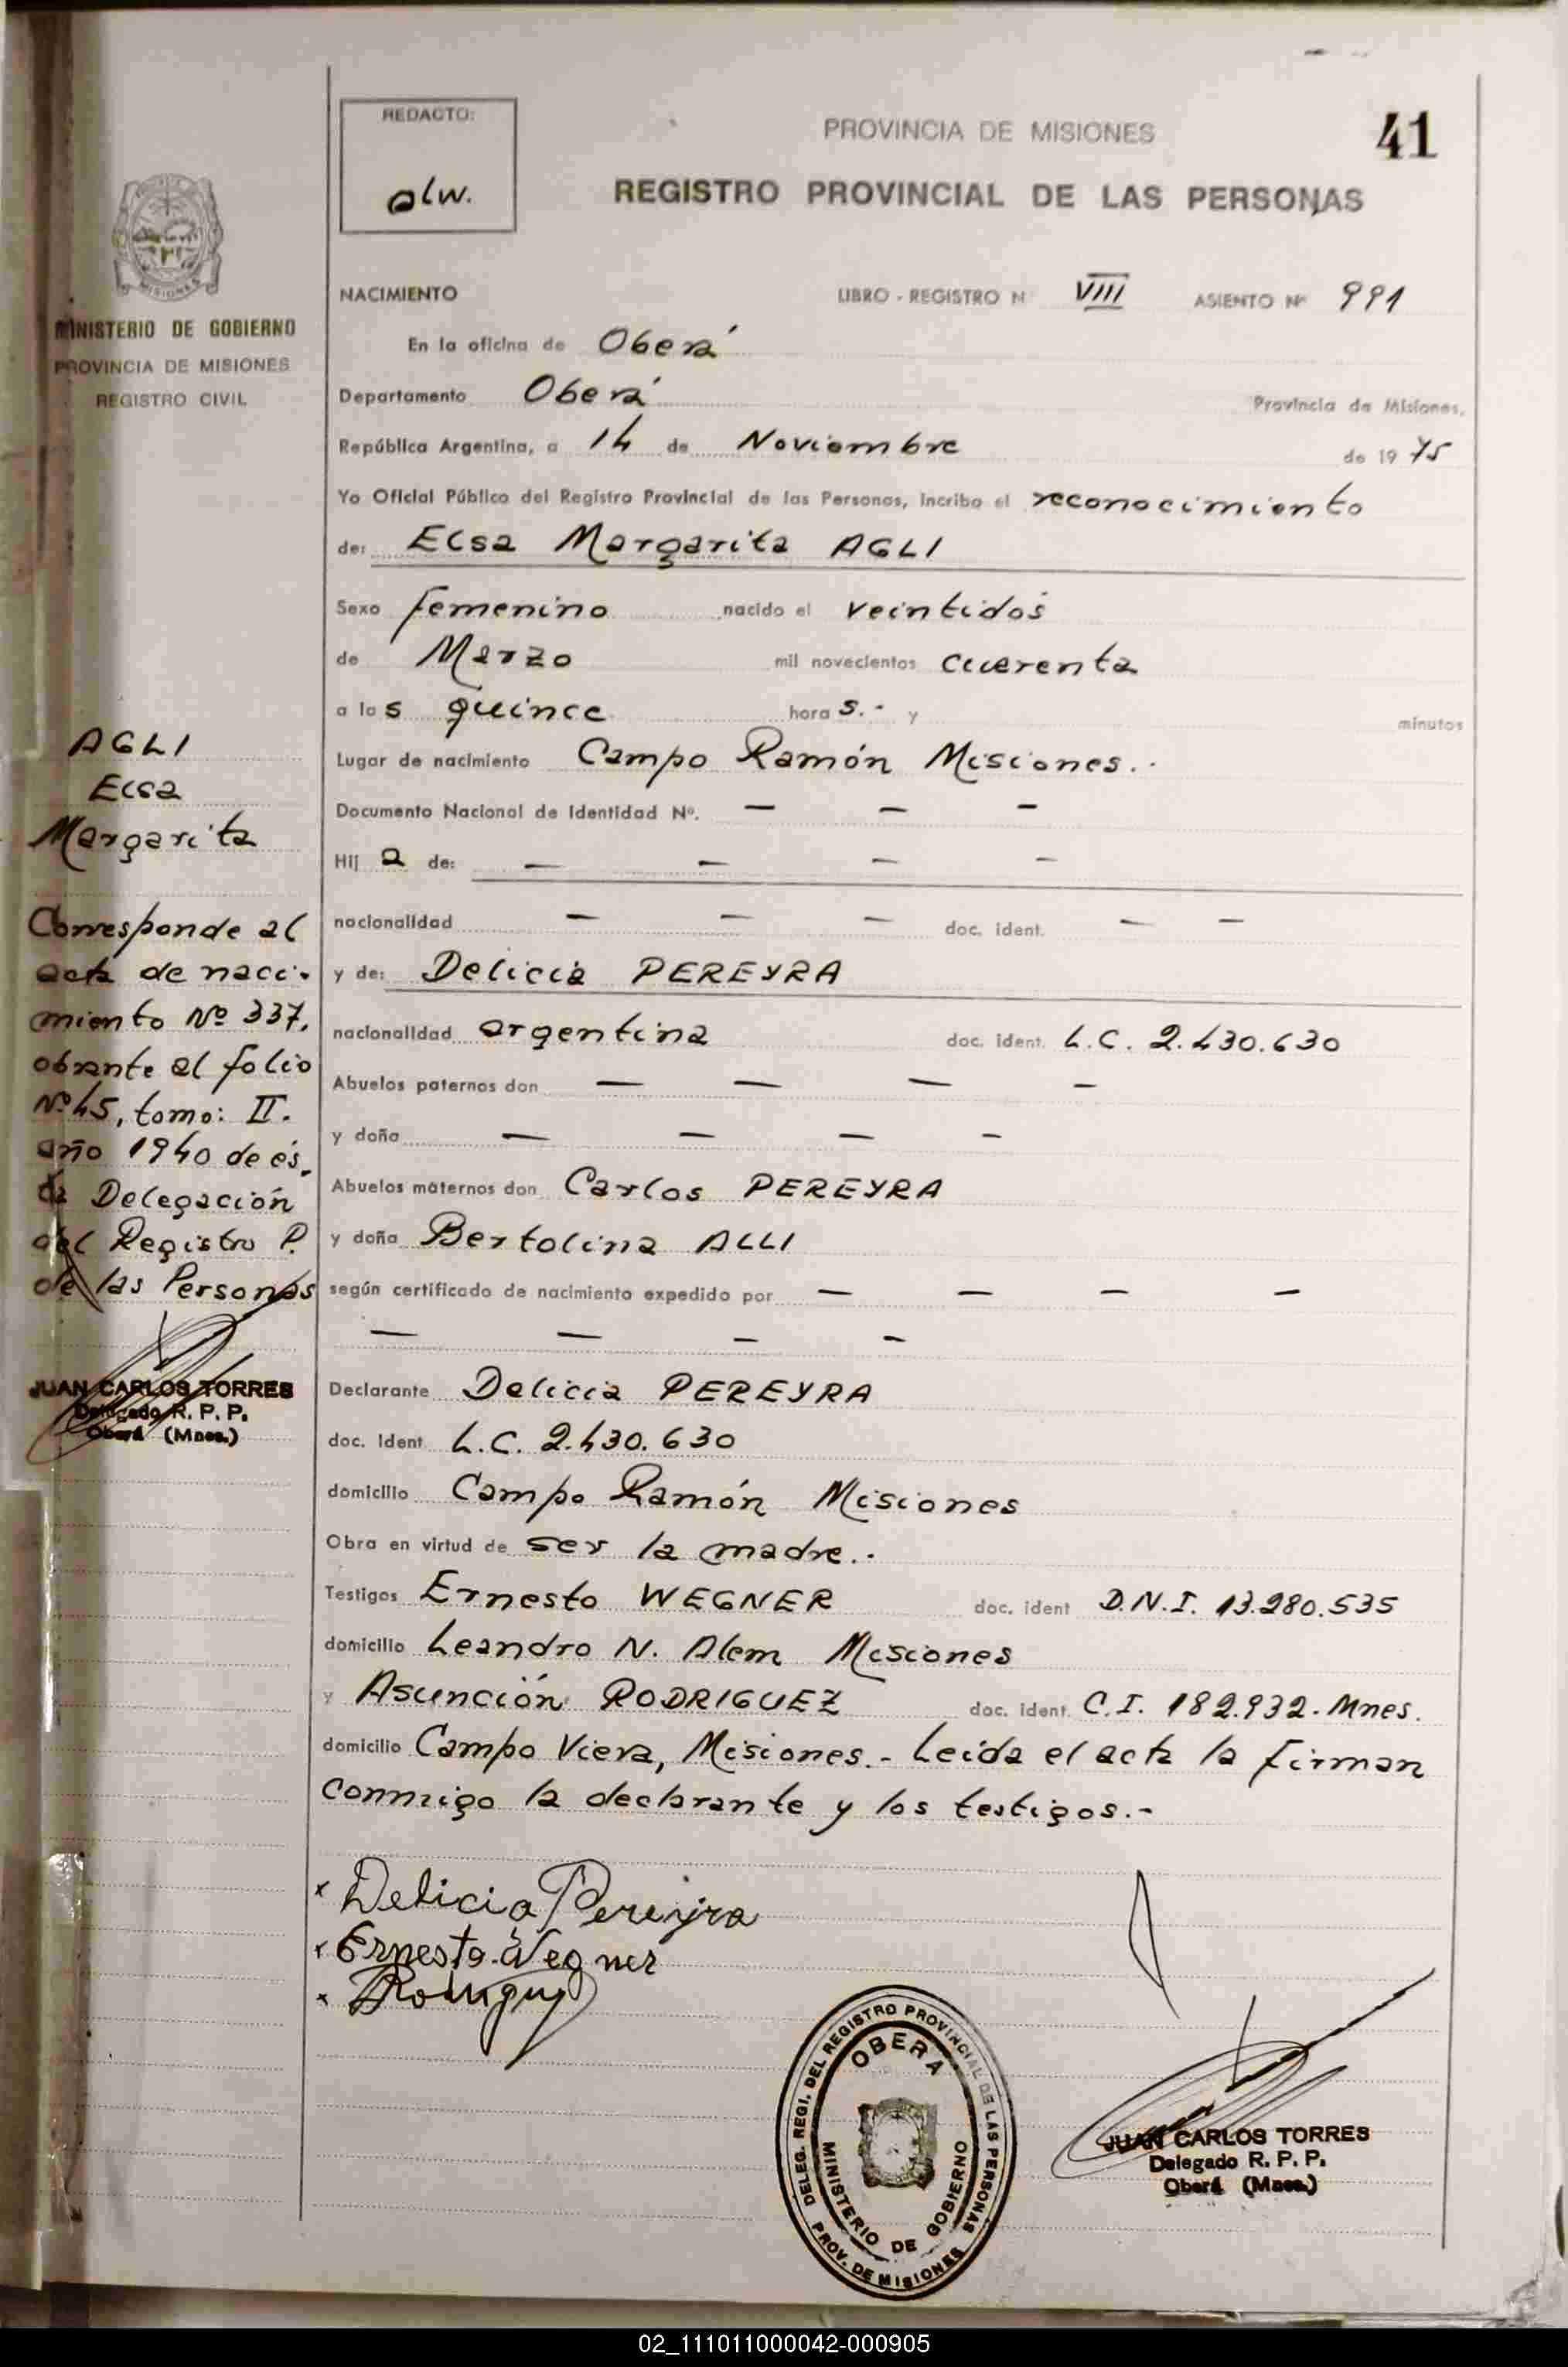 REDACTO:
alw.
PROVINCIA DE MISIONES
41
REGISTRO PROVINCIAL DE LAS PERSONAS
MISIONES
MINISTERIO DE GOBIERNO
PROVINCIA DE MISIONES
REGISTRO CIVIL
NACIMIENTO LIBRO - REGISTRO N VIII ASIENTO Nº 991
En la oficina de Oberá
Departamento Oberá Provincia de Misiones,
República Argentina, a 14 de Noviembre de 1975
Yo Oficial Público del Registro Provincial de las Personas, incribo el reconocimiento
de: Elsa Margarita AGLI
Sexo femenino nacido el veintidós
de Marzo mil novecientos cuarenta
a las quince horas.- y minutos
Lugar de nacimiento Campo Ramón Misiones.-
Documento Nacional de Identidad Nº. — — —
Hija de: — — — —
nacionalidad — — — doc. ident. — —
y de: Delicia PEREYRA
nacionalidad argentina doc. ident. L.C. 2.430.630
Abuelos paternos don — — — —
y doña — — — —
Abuelos maternos don Carlos PEREYRA
y doña Bertolina ALLI
según certificado de nacimiento expedido por — — — —
— — — —
Declarante Delicia PEREYRA
doc. ident. L.C. 2.430.630
domicilio Campo Ramón Misiones
Obra en virtud de ser la madre.-
Testigos Ernesto WEGNER doc. ident D.N.I. 13.280.535
domicilio Leandro N. Alem Misiones
y Asunción RODRIGUEZ doc. ident. C.I. 182.932.Mnes.
domicilio Campo Viera, Misiones.- Leída el acta la firman
conmigo la declarante y los testigos.-
AGLI
Elsa
Margarita
Corresponde al
acta de naci-
miento Nº 337,
obrante al folio
Nº 45, tomo: II.
año 1940 de és-
ta Delegación
del Registro P.
de las Personas
JUAN CARLOS TORRES
Delegado R. P. P.
Oberá (Mnes.)
x Delicia Pereyra
x Ernesto Wegner
x Rodriguez
DELEG. REGI. DEL REGISTRO PROVINCIAL DE LAS PERSONAS
OBERA
MINISTERIO DE GOBIERNO
PROV. DE MISIONES
JUAN CARLOS TORRES
Delegado R. P. P.
Oberá (Mnes.)
02_111011000042-000905